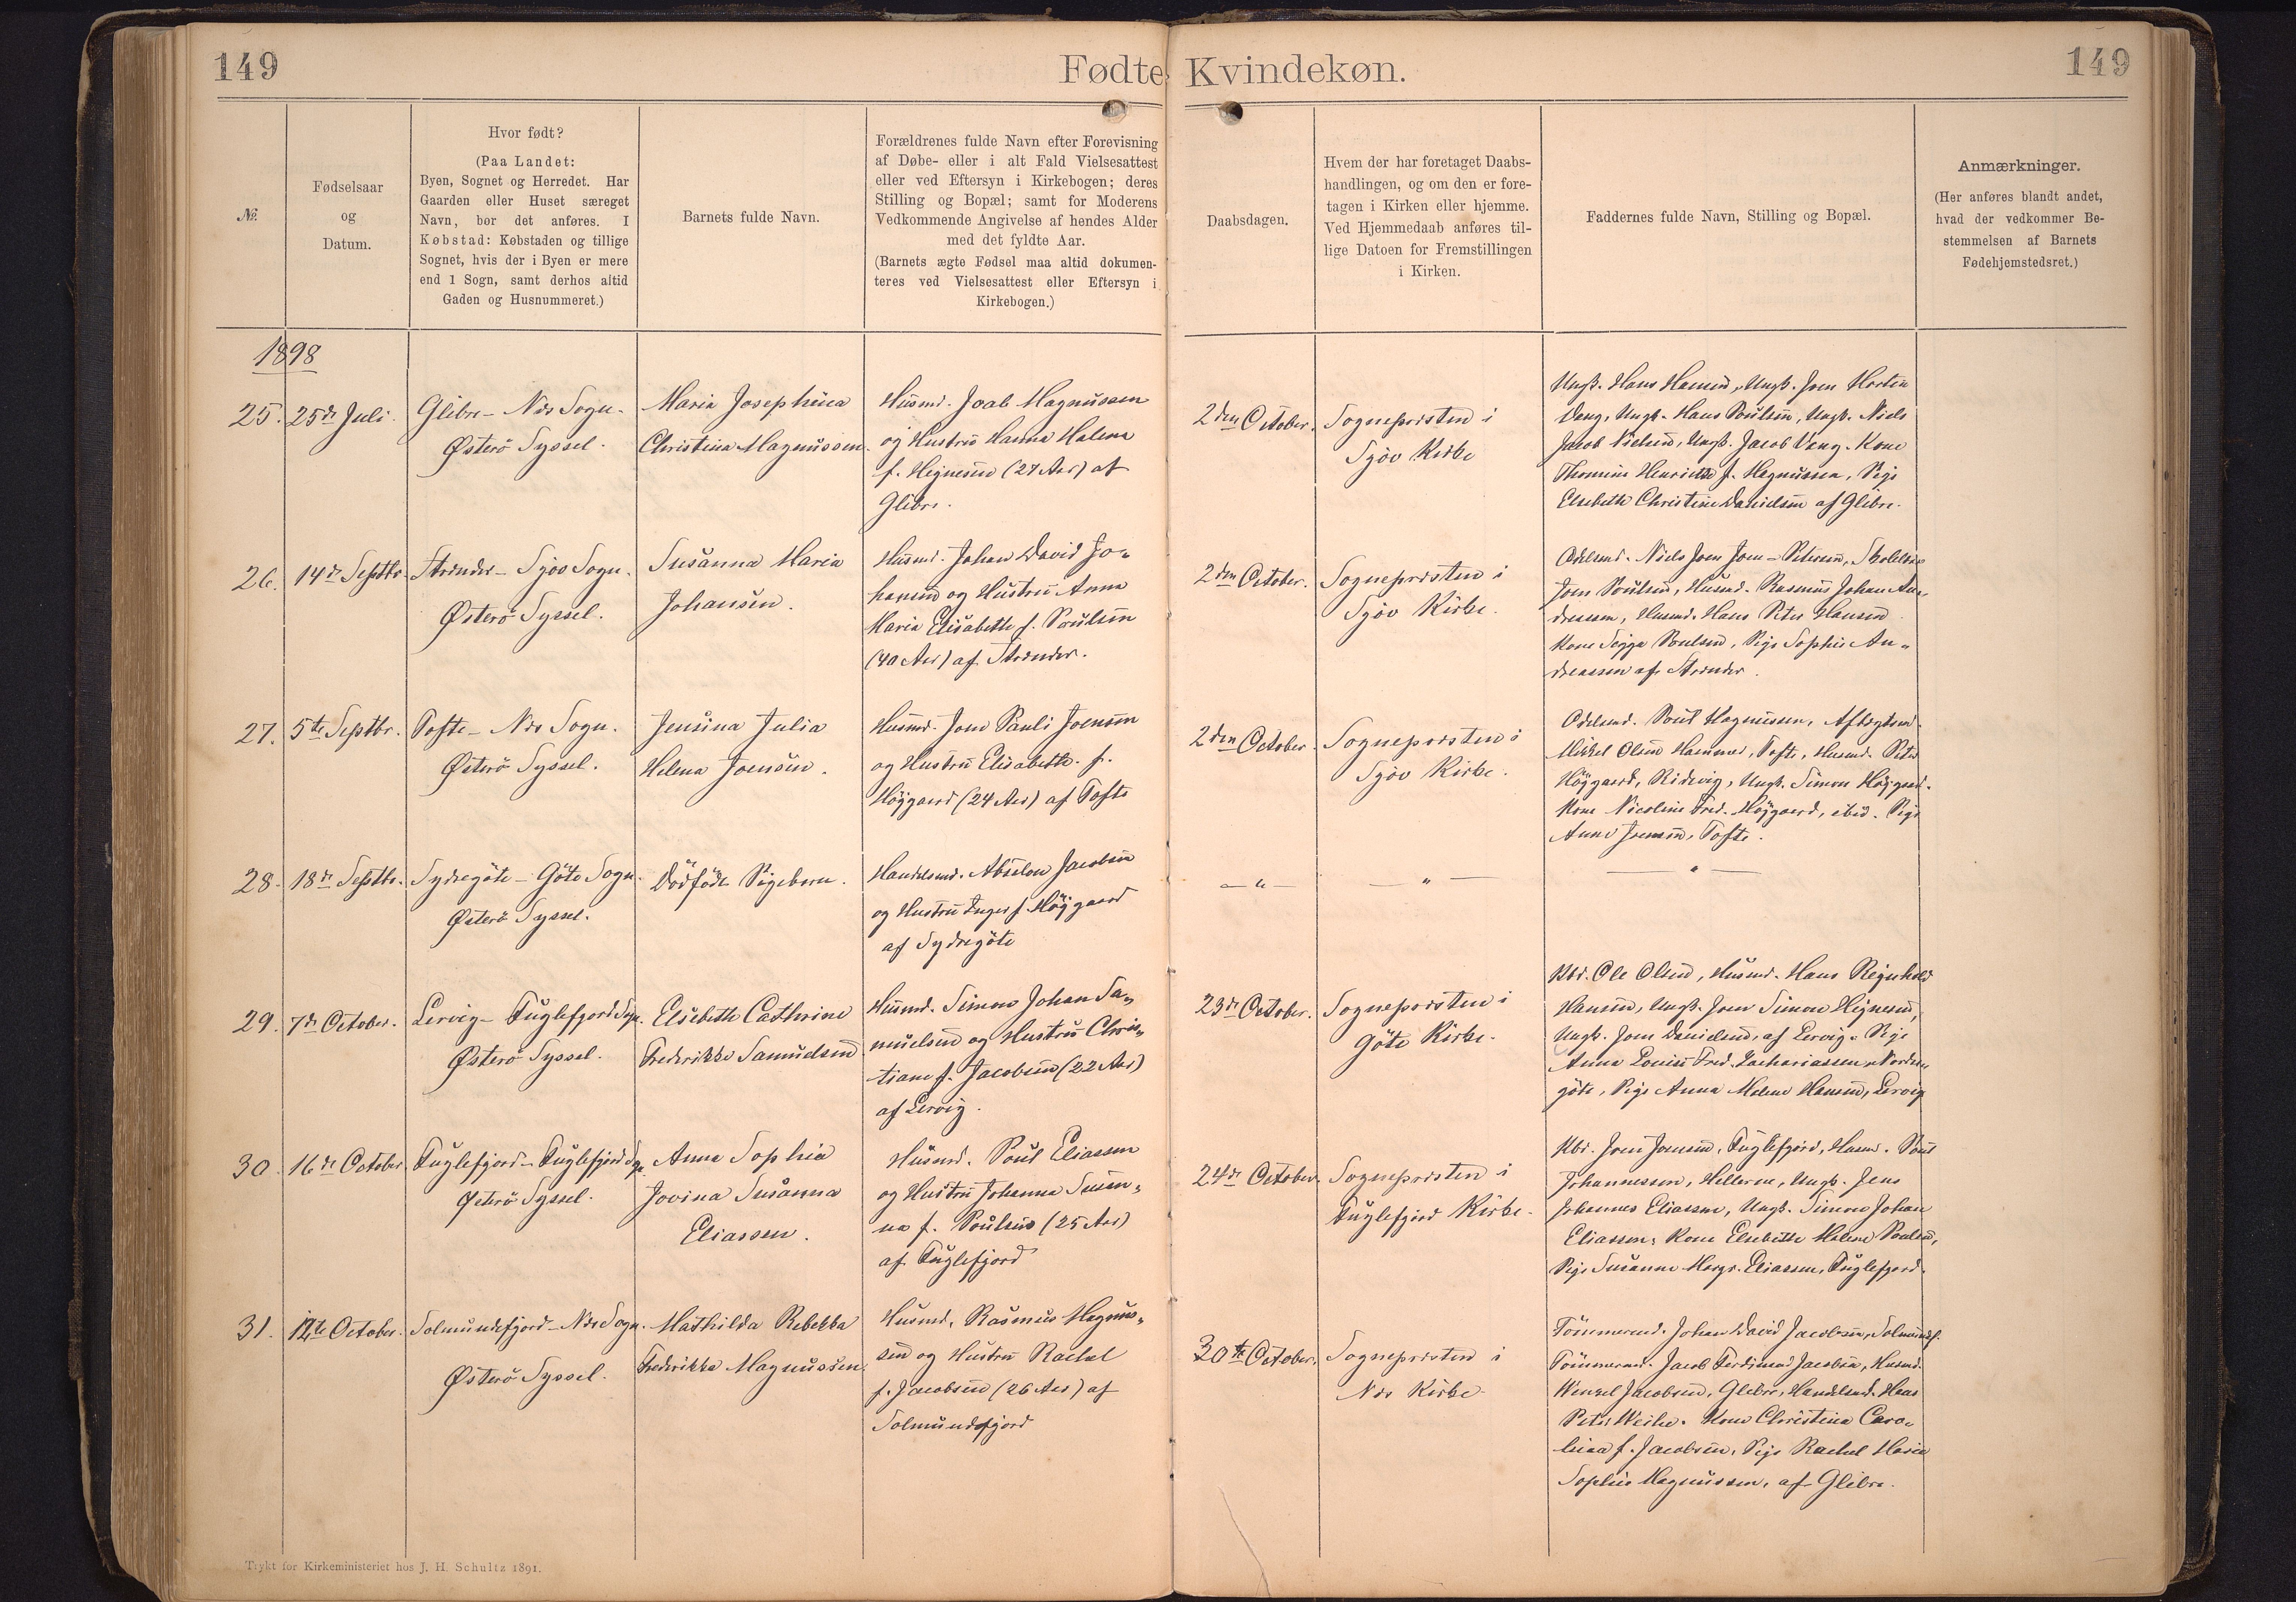 149
Fødte Kvindekøn.
149
№
Fødselsaar
og
Datum.
Hvor født?
(Paa Landet:
Byen, Sognet og Herredet. Har
Gaarden eller Huset særeget
Navn, bør det anføres. I
Købstad: Købstaden og tillige
Sognet, hvis der i Byen er mere
end 1 Sogn, samt derhos altid
Gaden og Husnummeret.)
Barnets fulde Navn.
Forældrenes fulde Navn efter Forevisning
af Døbe- eller i alt Fald Vielsesattest
eller ved Eftersyn i Kirkebogen; deres
Stilling og Bopæl; samt for Moderens
Vedkommende Angivelse af hendes Alder
med det fyldte Aar.
(Barnets ægte Fødsel maa altid dokumen-
teres ved Vielsesattest eller Eftersyn i
Kirkebogen.)
Daabsdagen.
Hvem der har foretaget Daabs-
handlingen, og om den er fore-
tagen i Kirken eller hjemme.
Ved Hjemmedaab anføres til-
lige Datoen for Fremstillingen
i Kirken.
Faddernes fulde Navn, Stilling og Bopæl.
Anmærkninger.
(Her anføres blandt andet,
hvad der vedkommer Be-
stemmelsen af Barnets
Fødehjemstedsret.)
1898
25.
25de Juli.
Glibre- Næs Sogn.
Østerö Syssel.
Maria Josephina
Christina Magnussen.
Husmd. Joab Magnussen
og Hustru Hanna Malena
f. Hejnesen (27 Aar) af
Glibre.
2den October.
Sognepræsten i
Sjöv Kirke
Ungk. Hans Hansen, Ungk. Joen Morten
Veng, Ungk. Hans Poulsen, Ungk. Niels
Jacob Nielsen, Ungk. Jacob Veng. Kone
f. Magnussen, Pige
Elsebeth Christine Danielsen af Glibre.
26.
14de Septbr.
Strænder- Sjös Sogn.
Østerö Syssel.
Susanna Maria
Johansen.
Husmd. Johan David Jo-
hansen og Hustru Anna
Maria Elisabeth f. Poulsen
(40 Aar) af Strænder.
2den October.
Sognepræsten i
Sjöv Kirke.
Odelsmd. Niels Joen Joen-Petersen,
Joen Poulsen, Husmd. Rasmus Johan An-
dreasen, Husmd. Hans Peter Hansen
Kone Poulsen, Pige Sophie An-
dreasen af Strænder.
27.
5te Septbr.
Tofte- Næs Sogn.
Østerö Syssel.
Jensina Julia
Helena Joensen.
Husmd. Joen Pauli Joensen
og Hustru Elisabeth f.
Höjgaard (24 Aar) af Tofte
2den October.
Sognepræsten i
Sjöv Kirke.
Odelsmd. Poul Magnussen, Aftægtsmd.
Mikkel Olsen Hammer, Tofte, Husmd. Peter
Höjgaard, Ridevig, Ungk. Simon Höjgaard.
Kone Nicoline Fred. Höjgaard, ibid. Pige
Anne Joensen, Tofte.
28.
18de Septbr.
Sydregöte- Göte Sogn.
Østerö Syssel.
Dödfödt Pigebarn.
Handelsmd. Abselon Jacobsen
og Hustru Inger f. Höjgaard
af Sydregöte
— " —
— " —
— " —
29.
7de October.
Lervig- Fuglefjord Sogn.
Østerö Syssel.
Elsebeth Cathrine
Frederikke Samuelsen
Husmd. Simon Johan Sa-
muelsen og Hustru Chris-
tiane f. Jacobsen (22 Aar)
af Lervig.
23de October.
Sognepræsten i
Göte Kirke.
Kbd. Ole Olsen, Husmd. Hans Rejnhold
Hansen, Ungk. Joen Simon Hejnesen,
Ungk. Joen Danielsen, af Lervig. Pige
Anna Louise Fred. Zachariassen, Nordre-
göte, Pige Anna Malene Hansen, Lervig
30.
16de October
Fuglefjord- Fuglefjord Sogn
Østerö Syssel.
Anna Sophia
Jovina Susanna
Eliassen.
Husmd. Poul Eliassen
og Hustru Johanna Susan-
na f. Poulsen (25 Aar)
af Fuglefjord
24de October.
Sognepræsten i
Fuglefjord Kirke.
Kbd. Joen Joensen, Fuglefjord, Husmd. Poul
Johannessen, Hellerne, Ungk. Jens
Johannes Eliassen, Ungk. Simon Johan
Eliassen, Kone Elsebeth Malene Poulsen,
Pige Susanne Margr. Eliassen, Fuglefjord.
31.
12te October.
Solmundefjord- Næs Sogn.
Østerö Syssel.
Mathilda Rebekka
Frederikka Magnussen.
Husmd. Rasmus Magnus-
sen og Hustru Rachel
f. Jacobsen (26 Aar) af
Solmundefjord
30te October.
Sognepræsten i
Næs Kirke.
Tömmermd. Johan David Jacobsen, Solmundef.
Tömmermd. Jacob Ferdinand Jacobsen, Husmd.
Wenzel Jacobsen, Glibre, Handelsmd. Hans
Peter Weihe. Kone Christina Caro-
lina f. Jacobsen, Pige Rachel Maria
Sophie Magnussen, af Glibre.
Trykt for Kirkeministeriet hos J. H. Schultz 1891.